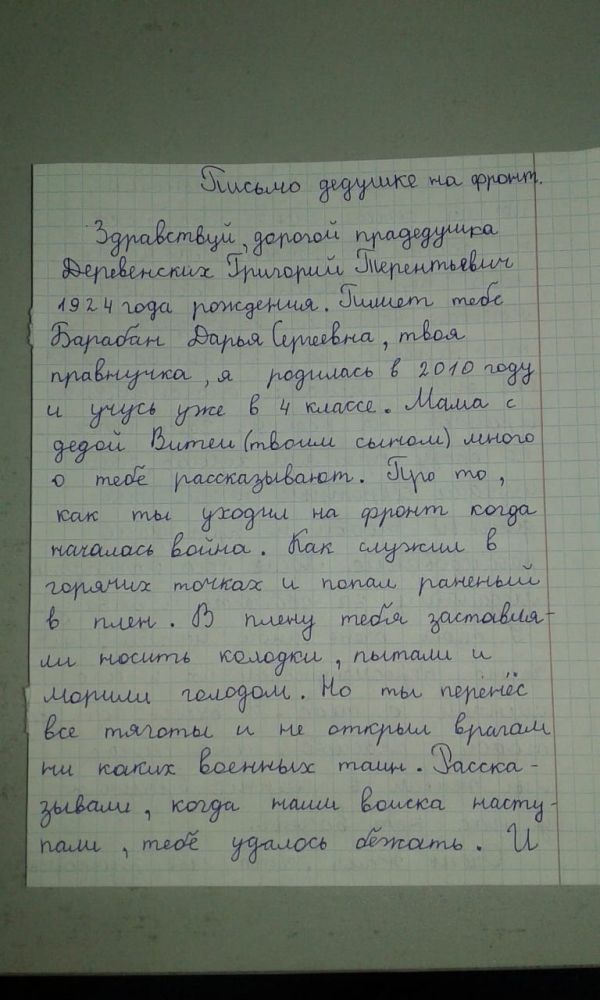 Письмо дедушке на фронт.
Здравствуй, дорогой прадедушка
Деревенских Григорий Терентьевич
1924 года рождения. Пишет тебе
Барабан Дарья Сергеевна, твоя
правнучка, я родилась в 2010 году
и учусь уже в 4 классе. Мама с
дедой Витей (твоим сыном) много
о тебе рассказывают. Про то,
как ты уходил на фронт когда
началась война. Как служил в
горячих точках и попал раненый
в плен. В плену тебя заставля-
ли носить колодки, пытали и
морили голодом. Но ты перенёс
все тяготы и не открыл врагам
ни каких военных таин. Расска-
зывали, когда наши воиска насту-
пали, тебе удалось бежать. И